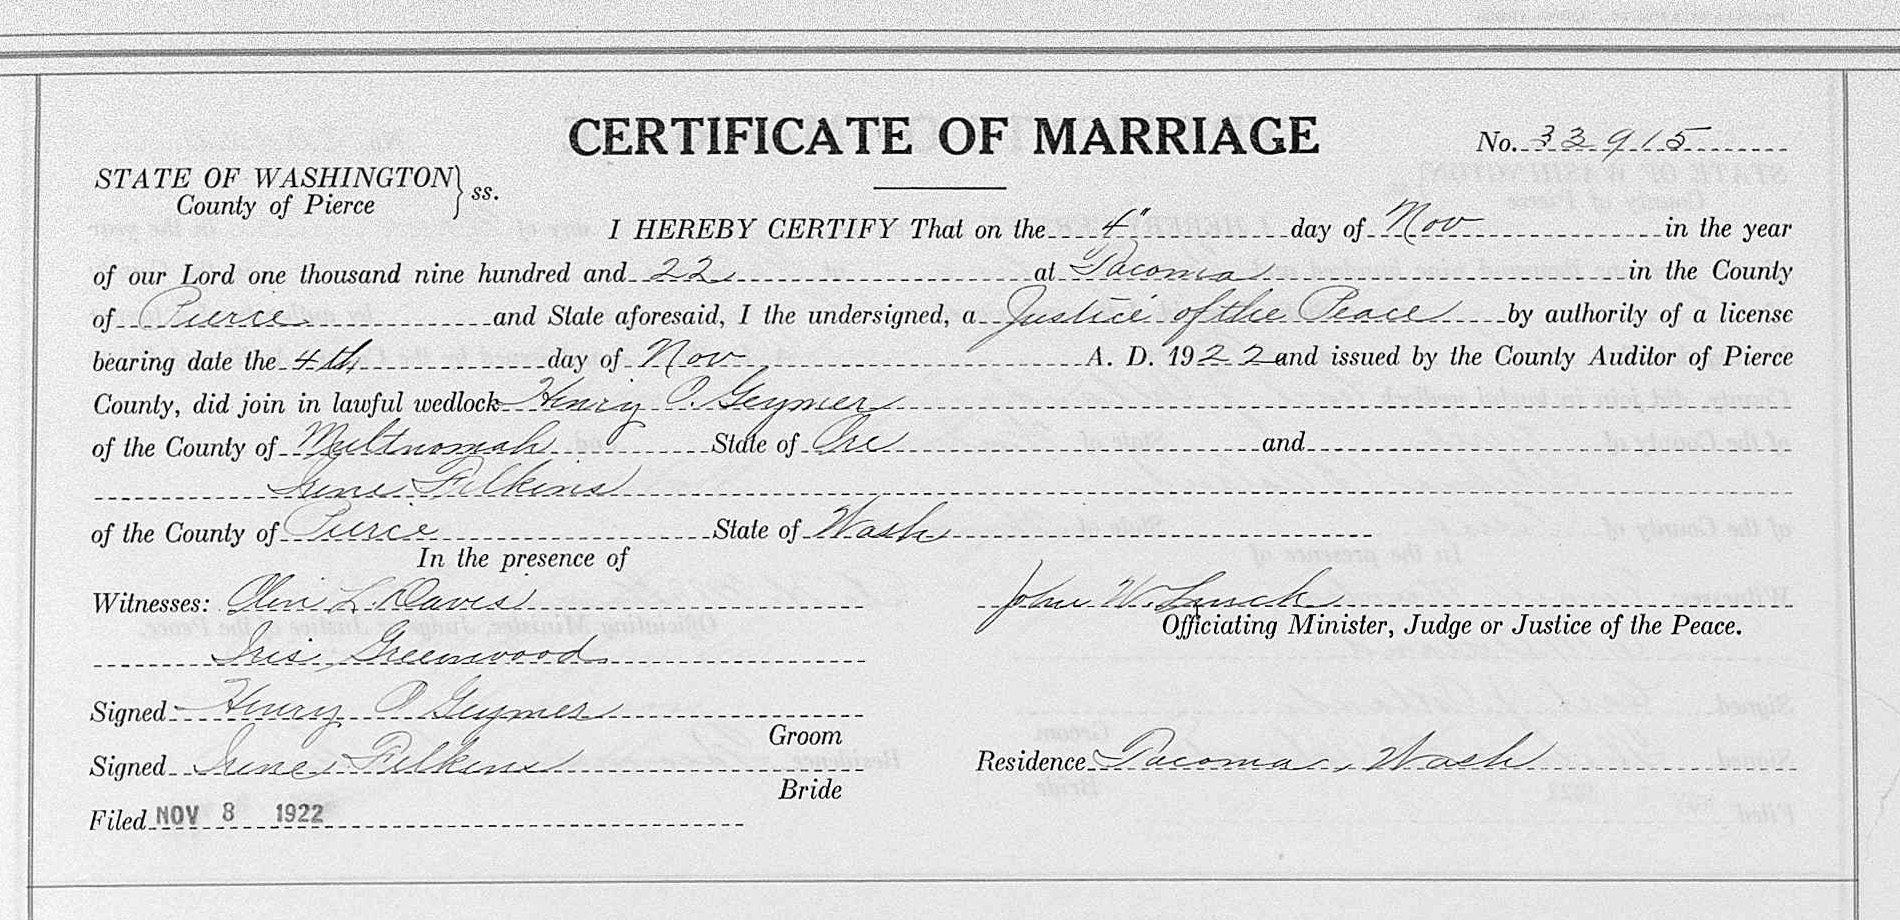 CERTIFICATE OF MARRIAGE
No. 33915
STATE OF WASHINGTON } ss.
County of Pierce
I HEREBY CERTIFY That on the 4" day of Nov in the year
of our Lord one thousand nine hundred and 22 at Tacoma in the County
of Pierce and State aforesaid, I the undersigned, a Justice of the Peace by authority of a license
bearing date the 4th day of Nov A. D. 1922 and issued by the County Auditor of Pierce
County, did join in lawful wedlock Henry O. Geymer
of the County of Multnomah State of Ore and
Irene Filkins
of the County of Pierce State of Wash
In the presence of
Witnesses: Olin L. Davis John W. Lynch
Officiating Minister, Judge or Justice of the Peace.
Iris Greenwood
Signed Henry O Geymer
Groom
Signed Irene Filkins Residence Tacoma, Wash
Bride
Filed NOV 8 1922